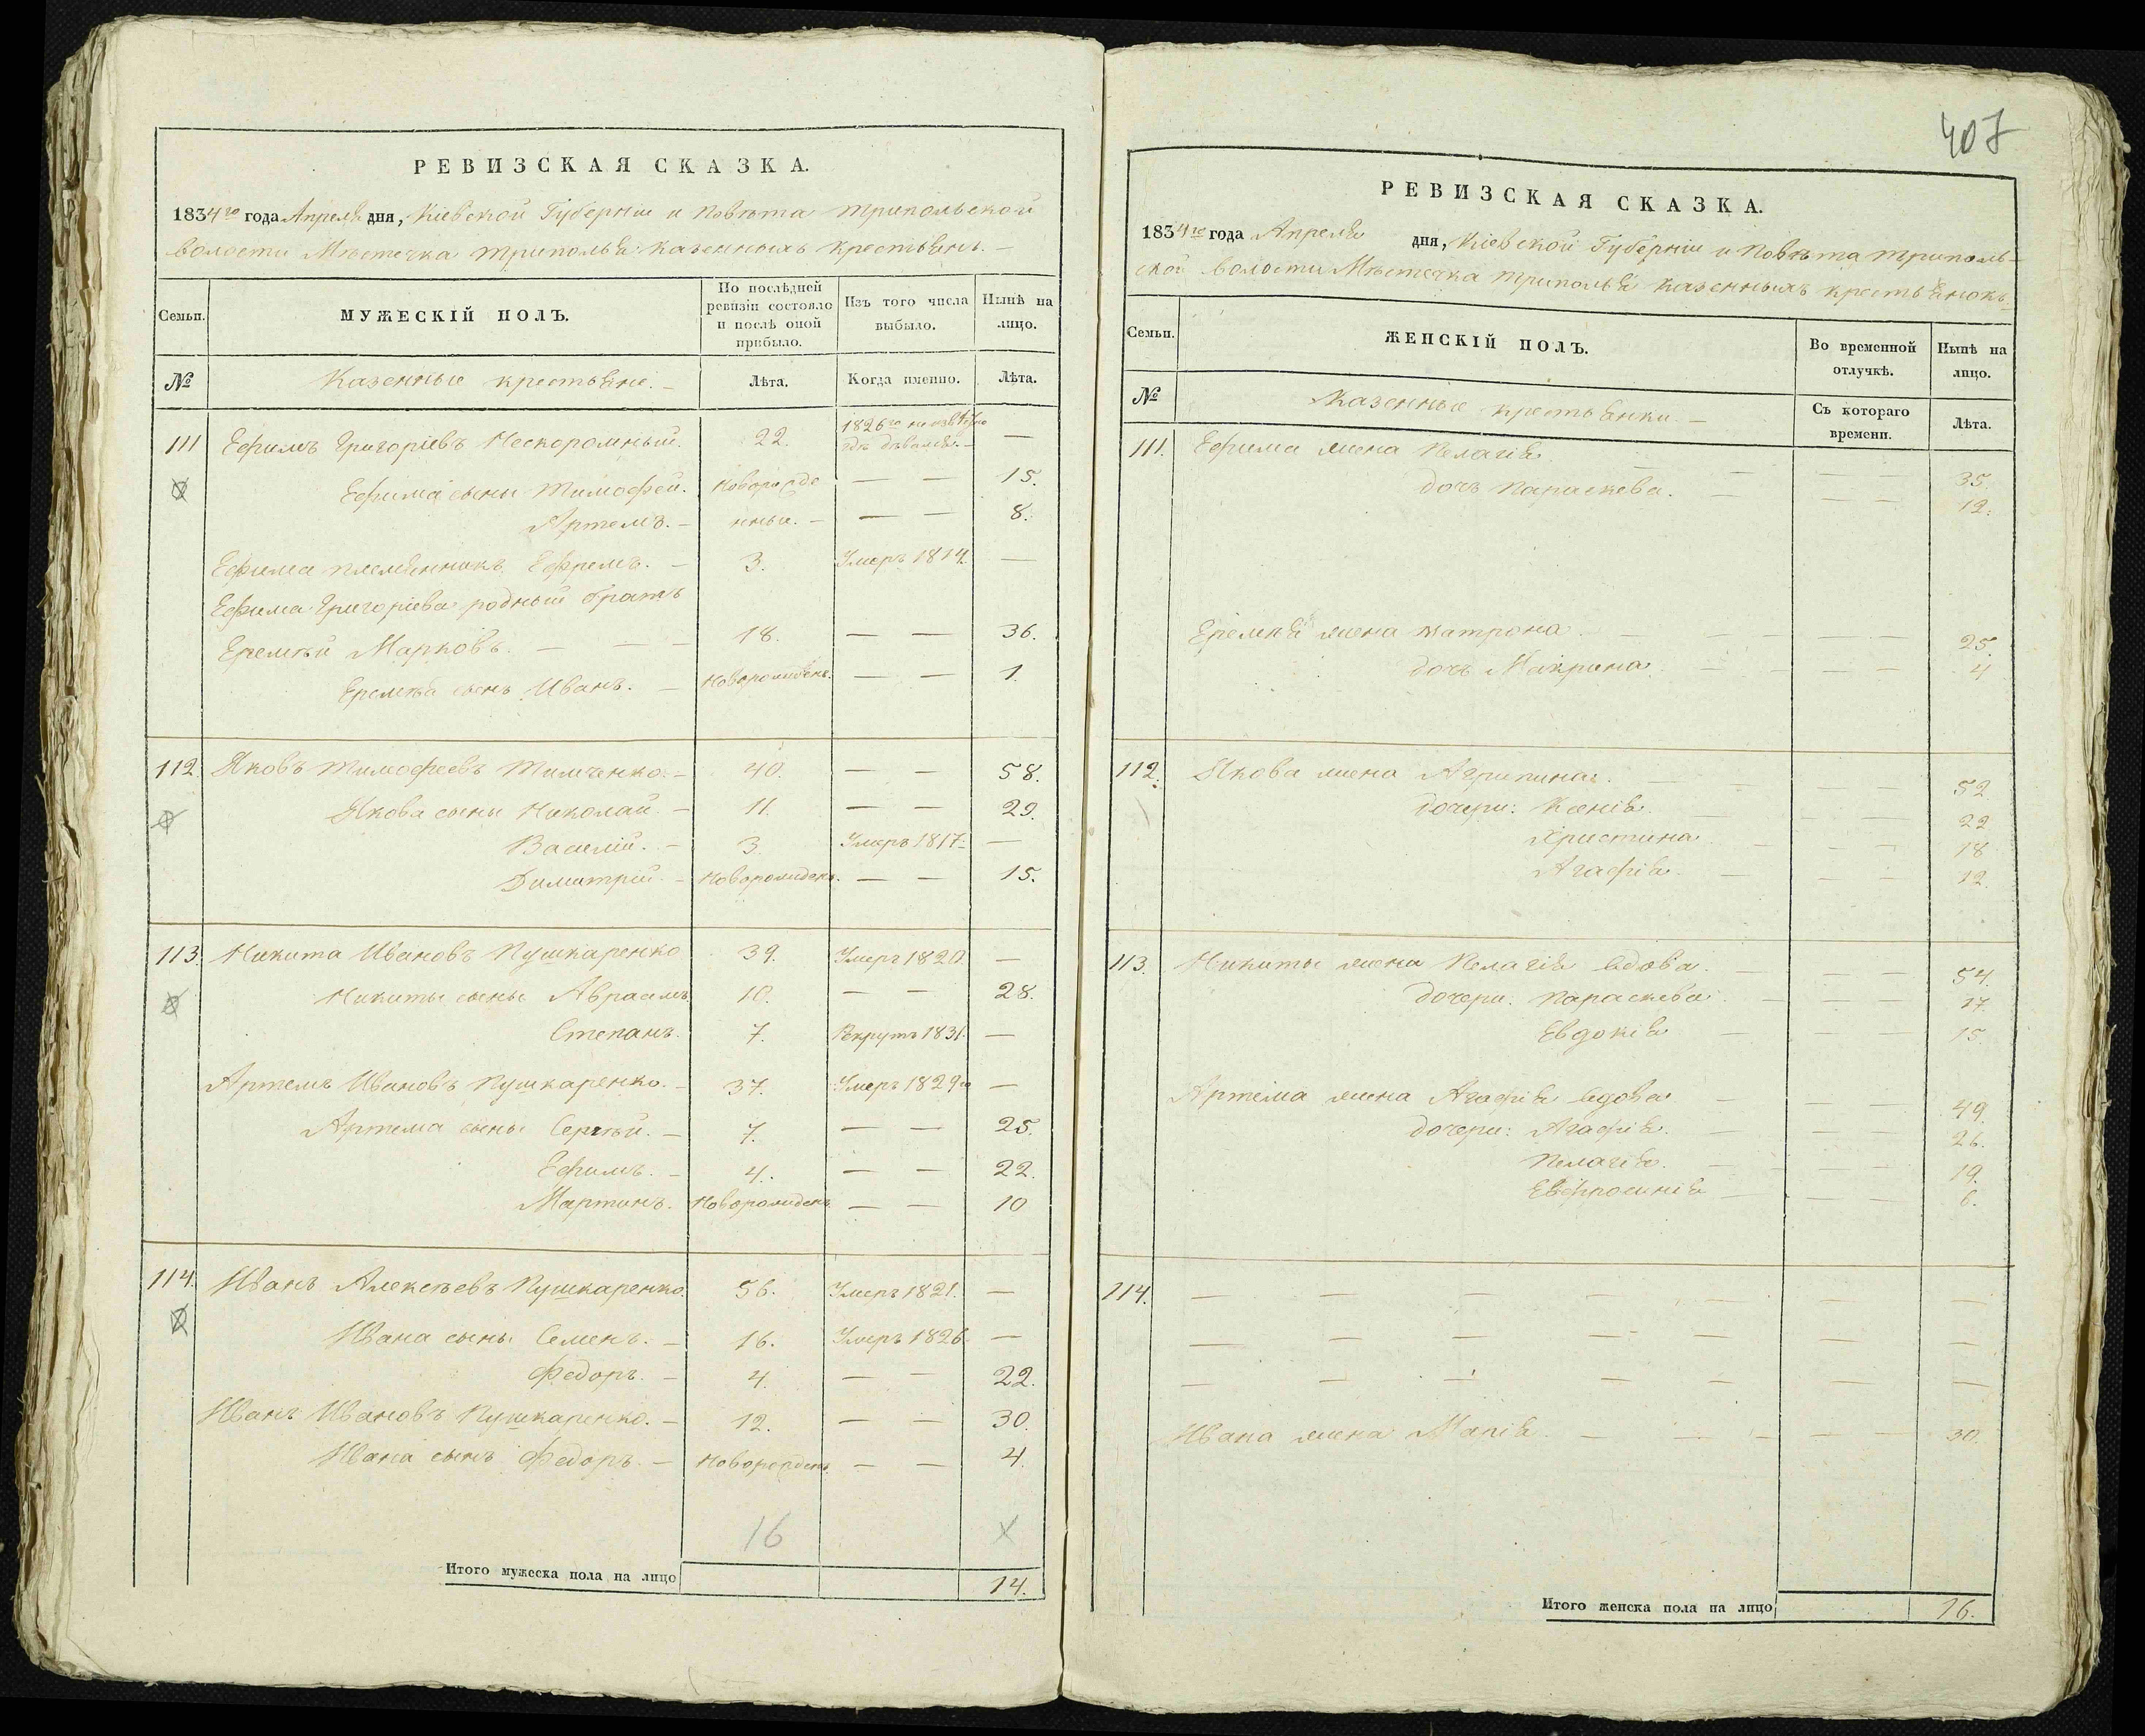 РЕВИЗСКАЯ СКАЗКА.
1834го года Апреля дня, Кіевской Губерніи и Повѣта Трипольской
волости Мѣстечка Триполья казенныхъ крестьянъ. —
Семьи.
МУЖЕСКІЙ ПОЛЪ.
По послѣдней
ревизіи состояло
и послѣ оной
прибыло.
Изъ того числа
выбыло.
Нынѣ на
лицо.
№
Казенные крестьяне. —
Лѣта.
Когда именно.
Лѣта.
111 Ефимъ Григоріевъ Нескоромный. 22. 1826го —
Ефима сыны Тимофей. Новорожде — — 15.
Артемъ. — нные. — — — 8.
Ефима племянникъ Ефремъ. — 3. Умеръ 1814. —
Ефима Григоріева родный братъ
Еремѣй Марковъ. — — — 18. — — 36.
Еремѣя сынъ Иванъ. — Новорожденъ. — — 1.
112. Яковъ Тимофеевъ Тимченко. — 40. — — 58.
Якова сыны Николай. — 11. — — 29.
Василій. — 3. Умеръ 1817. —
Димитрій. — Новорожденъ. — — 15.
113. Никита Ивановъ Пушкаренко 39. Умеръ 1820. —
Никиты сыны Авраамъ. 10. — — 28.
Степанъ. 7. Рекрутъ 1831. —
Артемъ Ивановъ Пушкаренко. — 37. Умеръ 1829го —
Артема сыны Сергѣй. — 7. — — 25.
Ефимъ. — 4. — — 22.
Мартинъ. Новорожденъ — — 10
114. Иванъ Алексѣевъ Пушкаренко. 56. Умеръ 1821. —
Ивана сыны Семенъ. — 16. Умеръ 1826. —
Федоръ. — 4. — — 22.
Иванъ Ивановъ Пушкаренко. — 12. — — 30.
Ивана сынъ Федоръ. — Новорожденъ — — 4.
16 х
Итого мужеска пола на лицо 14.
407
РЕВИЗСКАЯ СКАЗКА.
1834го года Апреля дня, Кіевской Губерніи и Повѣта Триполь-
ской волости Мѣстечка Триполья казенныхъ крестьянокъ
Семьи.
ЖЕНСКІЙ ПОЛЪ.
Во временной
отлучкѣ.
Нынѣ на
лицо.
№
Казенные крестьянки. —
Съ котораго
времени.
Лѣта.
111. Ефима жена Пелагія. — — — — 35.
дочь Параскева. — — — 12.
Еремѣя жена Матрона. — — — — 25.
дочь Макрина. — — — — 4
112. Якова жена Агрипина. — — — — 52
дочери: Ксенія. — — — — 22
Христина — — — 18
Агафія. — — — 12.
113. Никиты жена Пелагія вдова. — — — 54.
дочери: Параскева. — — — 17.
Евдокія — — — 15.
Артема жена Агафія вдова — — — 49.
дочери: Агафія. — — 26.
Пелагія. — — — — 19.
Евфросинія — — — — 6.
114. — — — — — — — —
— — — — — — — —
— — — — — — — —
Ивана жена Марія. — — — — — 30.
Итого женска пола на лицо 16.